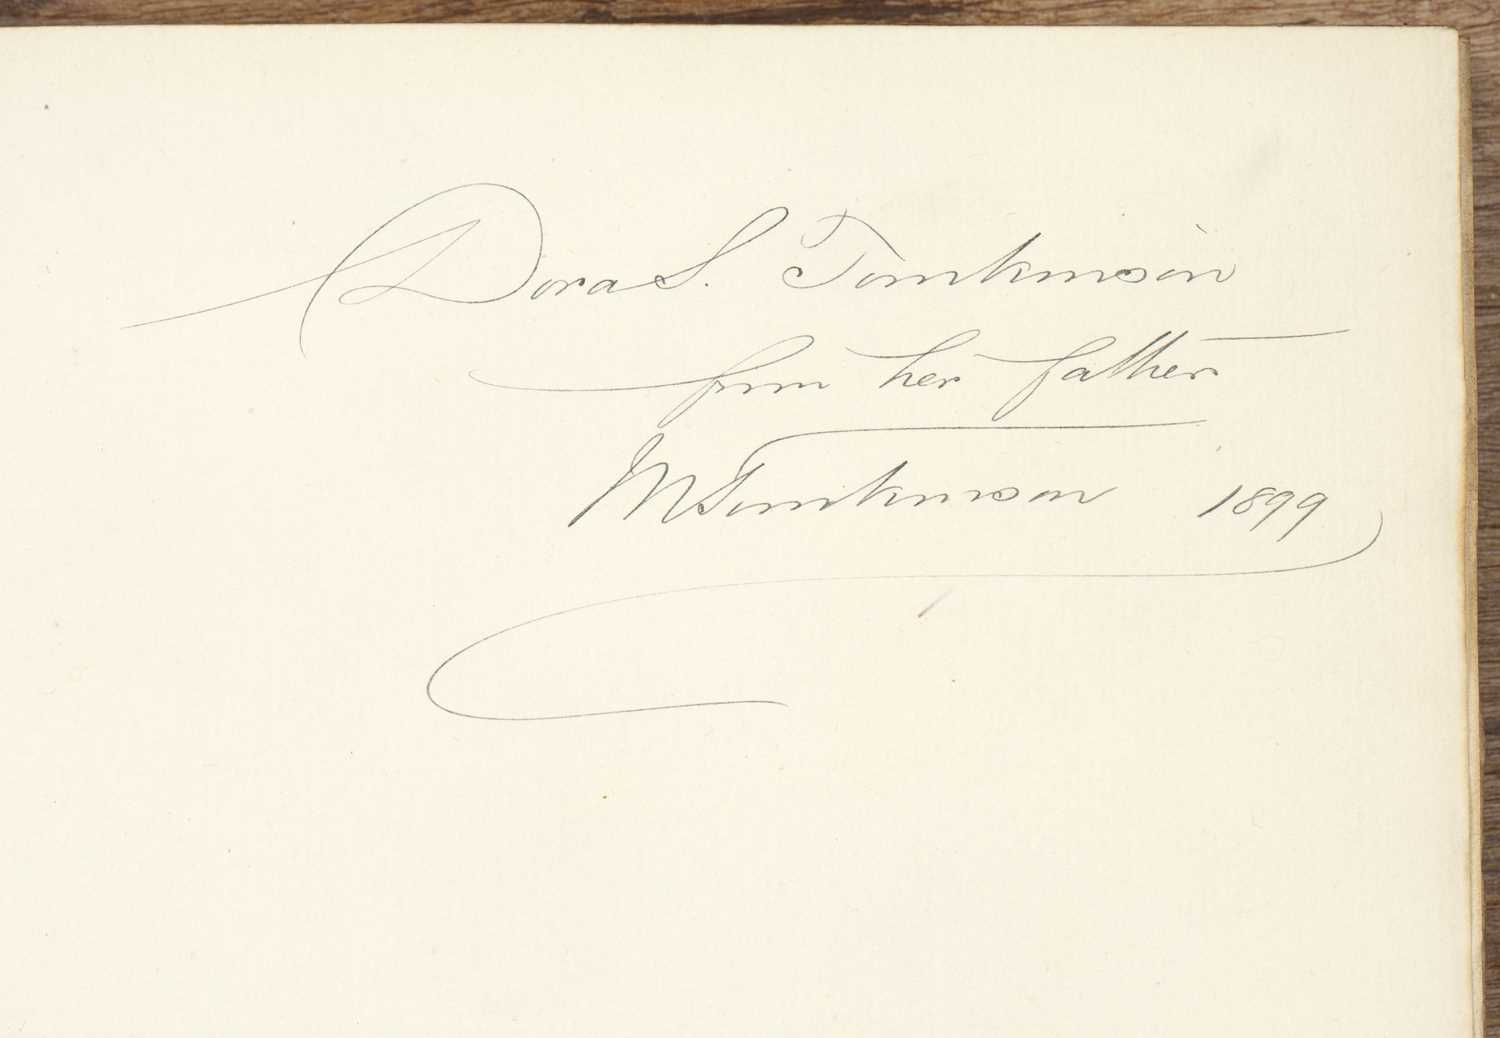 Dora S. Tomkinson
from her father
M Tomkinson 1899